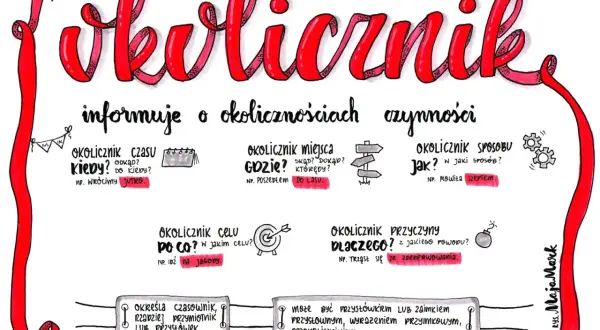 okolicznik
informuje o okolicznościach czynności
OKOLICZNIK CZASU
KIEDY? ODKĄD? DO KIEDY?
NP. WRÓCIMY JUTRO.
OKOLICZNIK MIEJSCA
GDZIE? SKĄD? DOKĄD? KTÓRĘDY?
NP. POSZEDŁEM DO LASU.
OKOLICZNIK SPOSOBU
JAK? W JAKI SPOSÓB?
NP. MÓWIŁA SZEPTEM.
OKOLICZNIK CELU
PO CO? W JAKIM CELU?
NP. IDŹ NA JAGODY.
OKOLICZNIK PRZYCZYNY
DLACZEGO? Z JAKIEGO POWODU?
NP. TRZĄSŁ SIĘ ZE ZDENERWOWANIA.
OKREŚLA CZASOWNIK,
RZADZIEJ PRZYMIOTNIK
LUB PRZYSŁÓWEK
MOŻE BYĆ PRZYSŁÓWKIEM LUB ZAIMKIEM
PRZYSŁOWNYM, WYRAŻENIEM PRZYIMKOWYM,
RYS. MajaMark